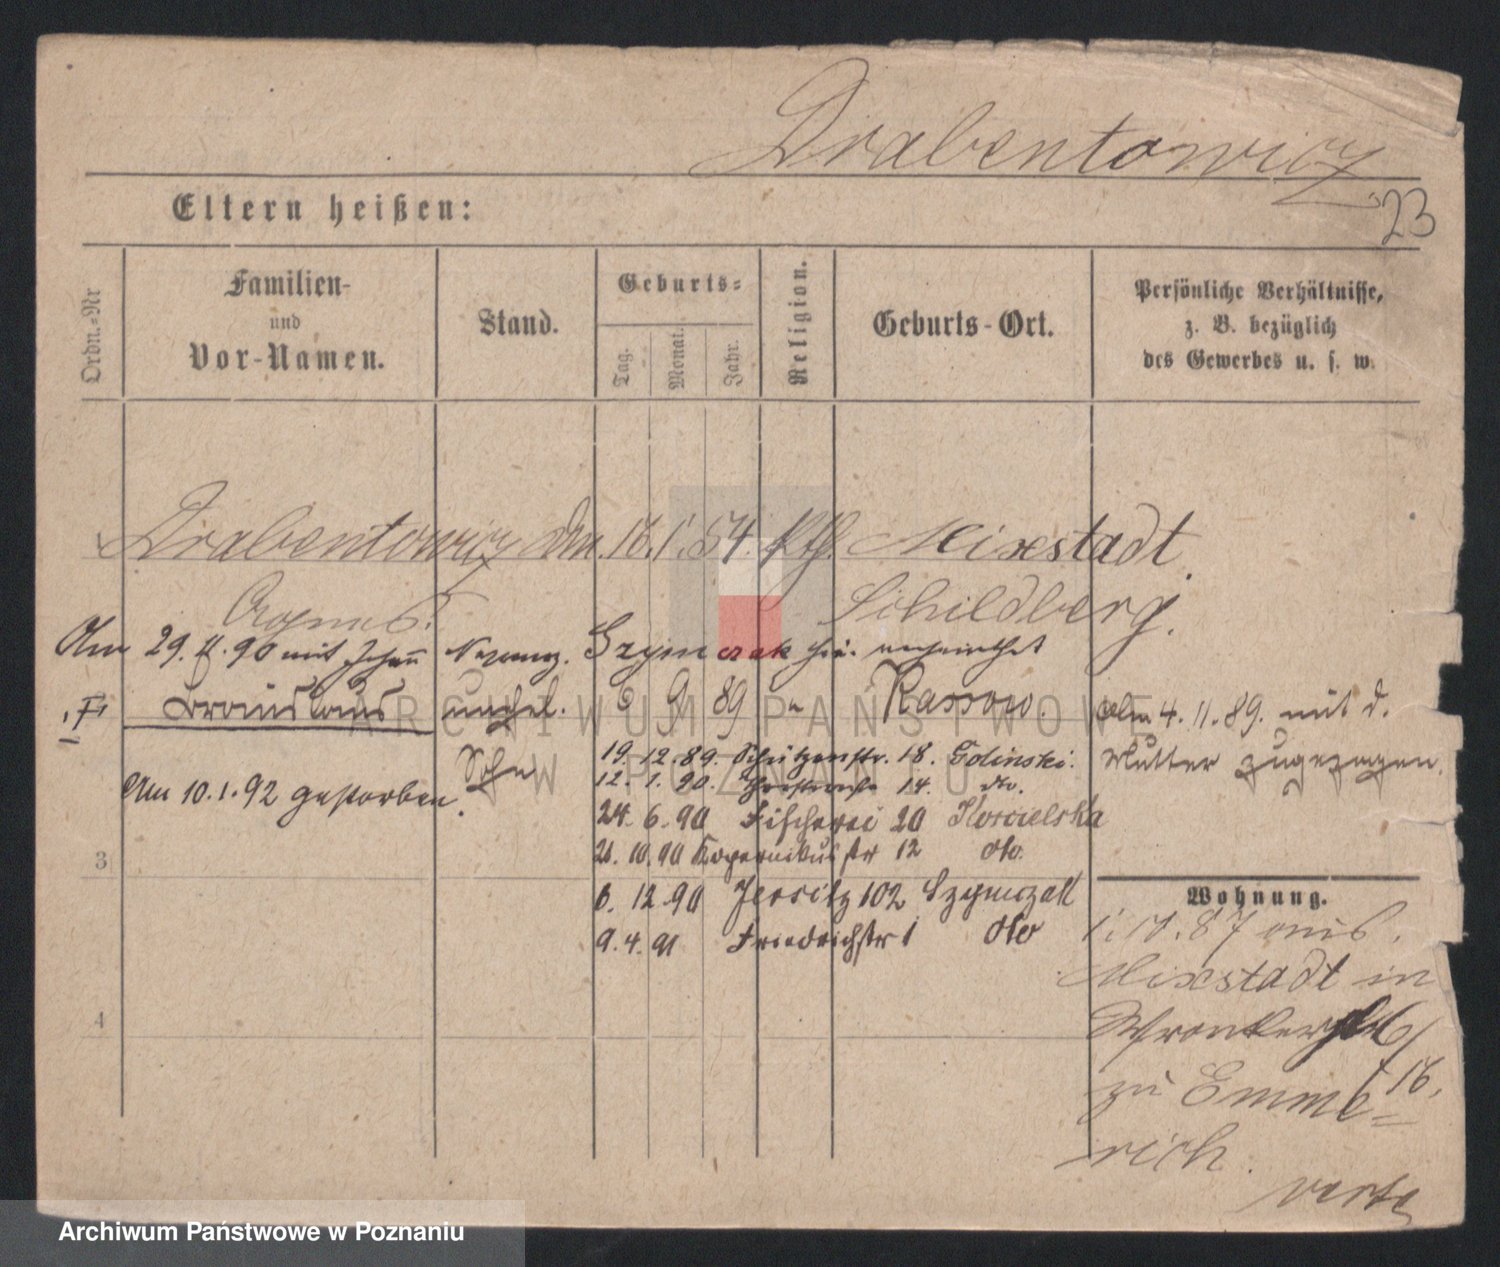 Drabentowicz
23
Eltern heißen:
Ordn.=Nr
Familien-
und
Vor-Namen.
Stand.
Geburts=
Tag.
Monat.
Jahr.
Religion.
Geburts-Ort.
Persönliche Verhältnisse,
z. B. bezüglich
des Gewerbes u. s. w.
Drabentowicz 16. 1. 54. kth. Mixstadt
Agnes. Schildberg.
Am 29. 11. 90 mit Johann Szymczak verheirathet
unehel. 6 9 89 Kassow. Am 4. 11. 89. mit d.
Sohn Mutter zugezogen.
19. 12. 89. Schützenstr. 18. Golinski.
12. 1. 90. 14. do.
Am 10. 1. 92 gestorben.
24. 6. 90 Fischerei 20 Koscielska
21. 10. 90 Kopernikusstr 12 do.
3
6. 12. 90 Jersitz 102 Szymczak
9. 4. 91 Friedrichstr 1 do
Wohnung.
87 aus
Mixstadt in
4
Wronkerstr 16
zu Emme=
rich.
verte
ARCHIWUM PAŃSTWOWE
W POZNANIU
Archiwum Państwowe w Poznaniu